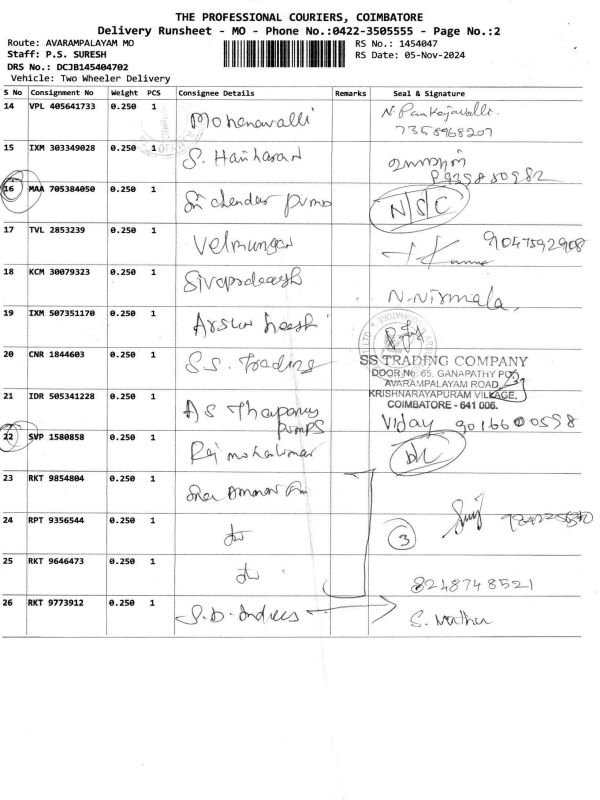 THE PROFESSIONAL COURIERS, COIMBATORE
Delivery Runsheet - MO - Phone No.:0422-3505555 - Page No.:2
Route: AVARAMPALAYAM MO
RS No.: 1454047
Staff: P.S. SURESH
RS Date: 05-Nov-2024
DRS No.: DCJB145404702
Vehicle: Two Wheeler Delivery
S No Consignment No Weight PCS Consignee Details Remarks Seal & Signature
14 VPL 405641733 0.250 1 Mohanavalli N. Pankajavalli.
7358968207
15 IXM 303349028 0.250 1 S. Hariharan
16 MAA 705384050 0.250 1 Sri chendur pump N/S/C
17 TVL 2853239 0.250 1 Velmurugan 9047592908
18 KCM 30079323 0.250 1 N. Nirmala.
19 IXM 507351170 0.250 1
20 CNR 1844603 0.250 1 S.S. Trading
SS TRADING COMPANY
DOOR No: 65, GANAPATHY
AVARAMPALAYAM ROAD,
KRISHNARAYAPURAM VILLAGE,
COIMBATORE - 641 006.
21 IDR 505341228 0.250 1 A S Thapanus pumps Vijay
22 SVP 1580858 0.250 1 Raj mohankumar DL
23 RKT 9854804 0.250 1
24 RPT 9356544 0.250 1 3
25 RKT 9646473 0.250 1 8248748521
26 RKT 9773912 0.250 1 S.D. Indries